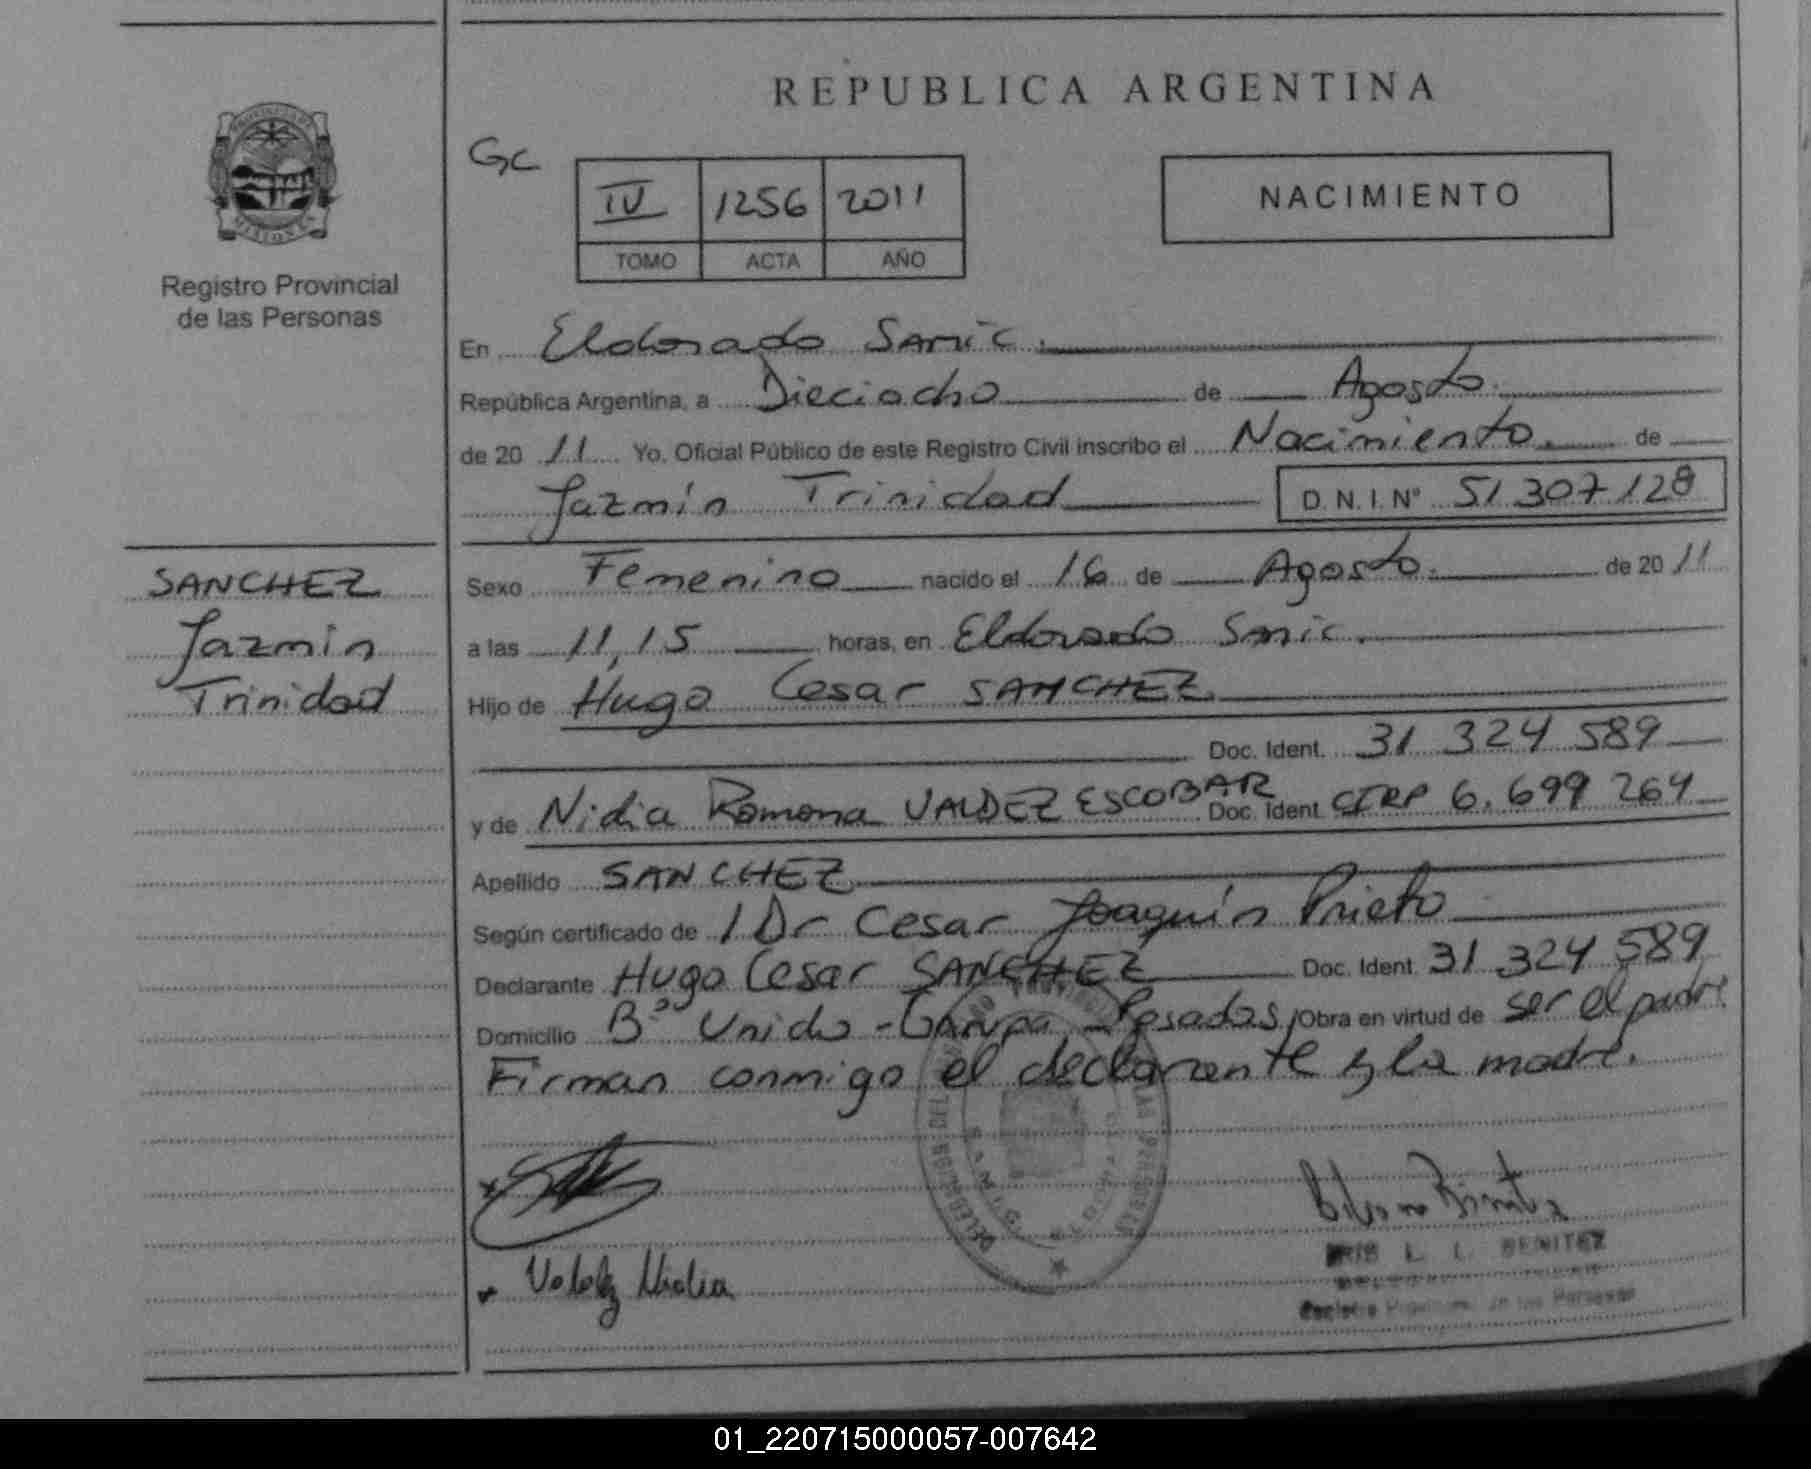 REPUBLICA ARGENTINA
PROVINCIA DE
MISIONES
Registro Provincial
de las Personas
GC
IV 1256 2011
TOMO ACTA AÑO
NACIMIENTO
En Eldorado Samic.
República Argentina, a Dieciocho de Agosto.
de 20 11 Yo, Oficial Público de este Registro Civil inscribo el Nacimiento. de
Jazmín Trinidad D.N.I. Nº 51 307 128
SANCHEZ
Jazmín
Trinidad
Sexo Femenino nacido el 16 de Agosto. de 20 11
a las 11,15 horas, en Eldorado Samic.
Hijo de Hugo Cesar SANCHEZ
Doc. Ident. 31 324 589
y de Nidia Ramona VALDEZ ESCOBAR Doc. Ident. CIRP 6.699 264
Apellido SANCHEZ
Según certificado de / Dr Cesar Joaquín Prieto
Declarante Hugo Cesar SANCHEZ Doc. Ident. 31 324 589
Domicilio Bº Unido - Garupa - Posadas / Obra en virtud de ser el padre
Firman conmigo el declarante y la madre.
Valdez Nidia
L. L. BENITEZ
01_220715000057-007642